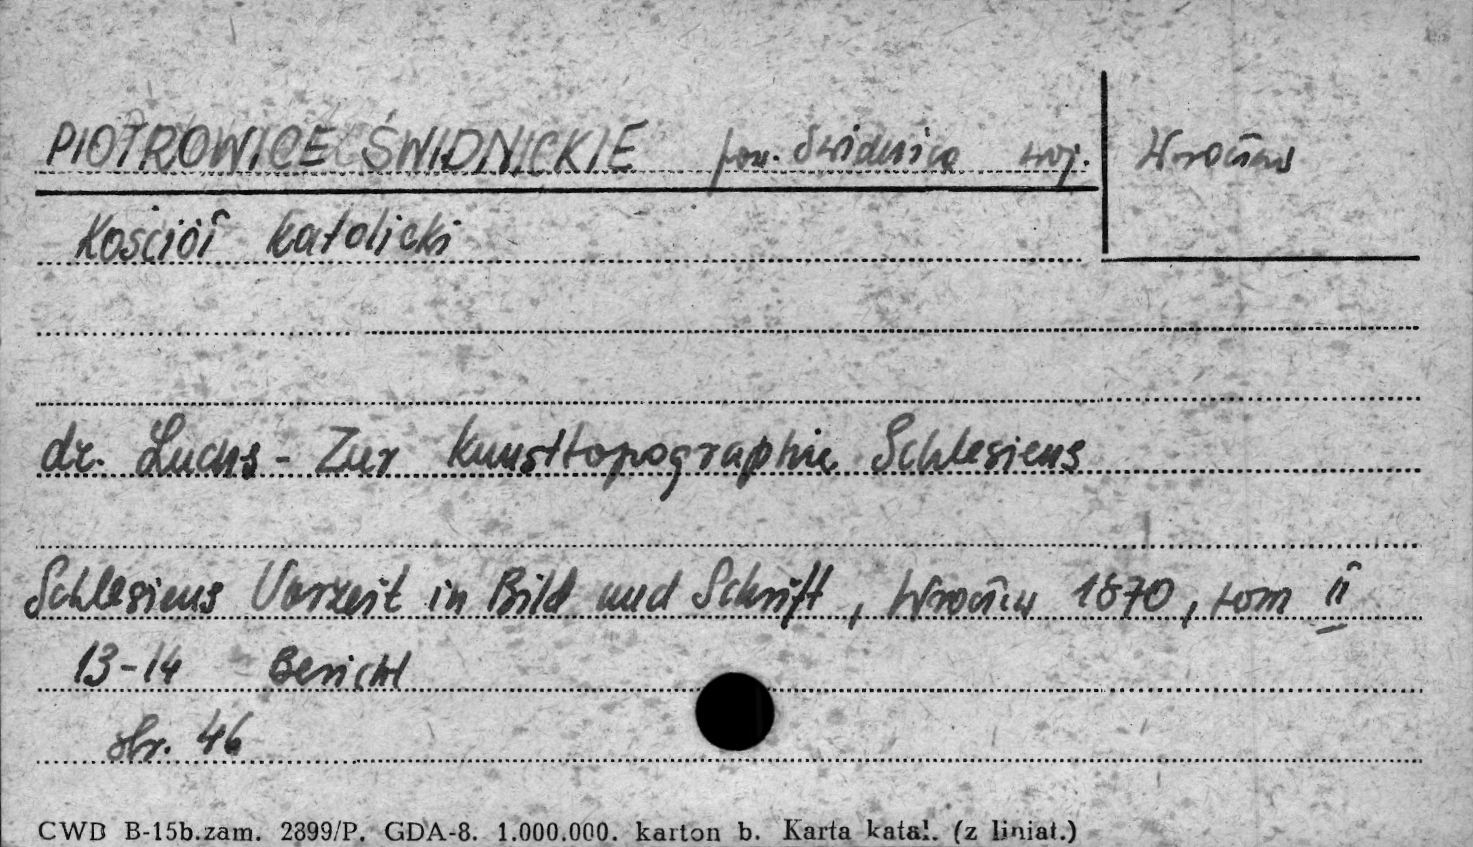 PIOTROWICE ŚWIDNICKIE pow. Świdnica woj. Wrocław
Kościół katolicki
dr. Luchs - Zur Kunsttopographie Schlesiens
Schlesiens Vorzeit in Bild und Schrift, Wrocław 1870, tom II
13-14 Bericht
str. 46
CWD B-15b.zam. 2899/P. GDA-8. 1.000.000. karton b. Karta katal. (z liniat.)